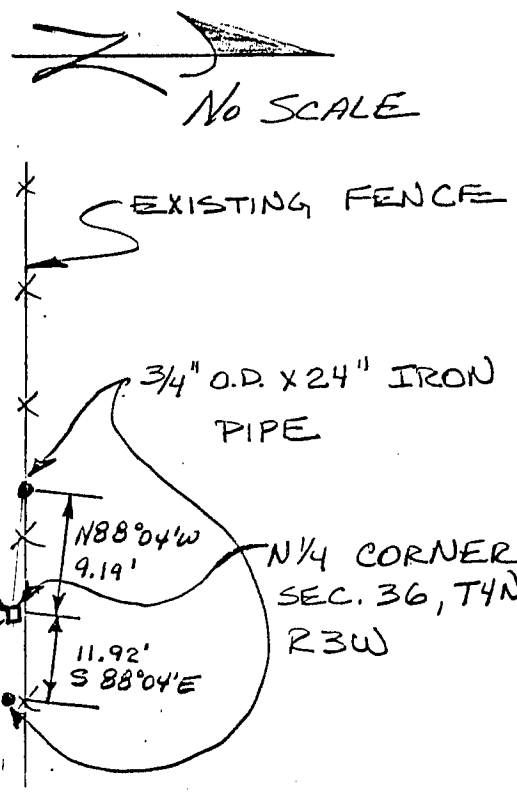 N
No SCALE
EXISTING FENCE
3/4" O.D. X 24" IRON
PIPE
N88°04'W
9.19'
N1/4 CORNER
SEC. 36, T4N
R3W
11.92'
S 88°04'E